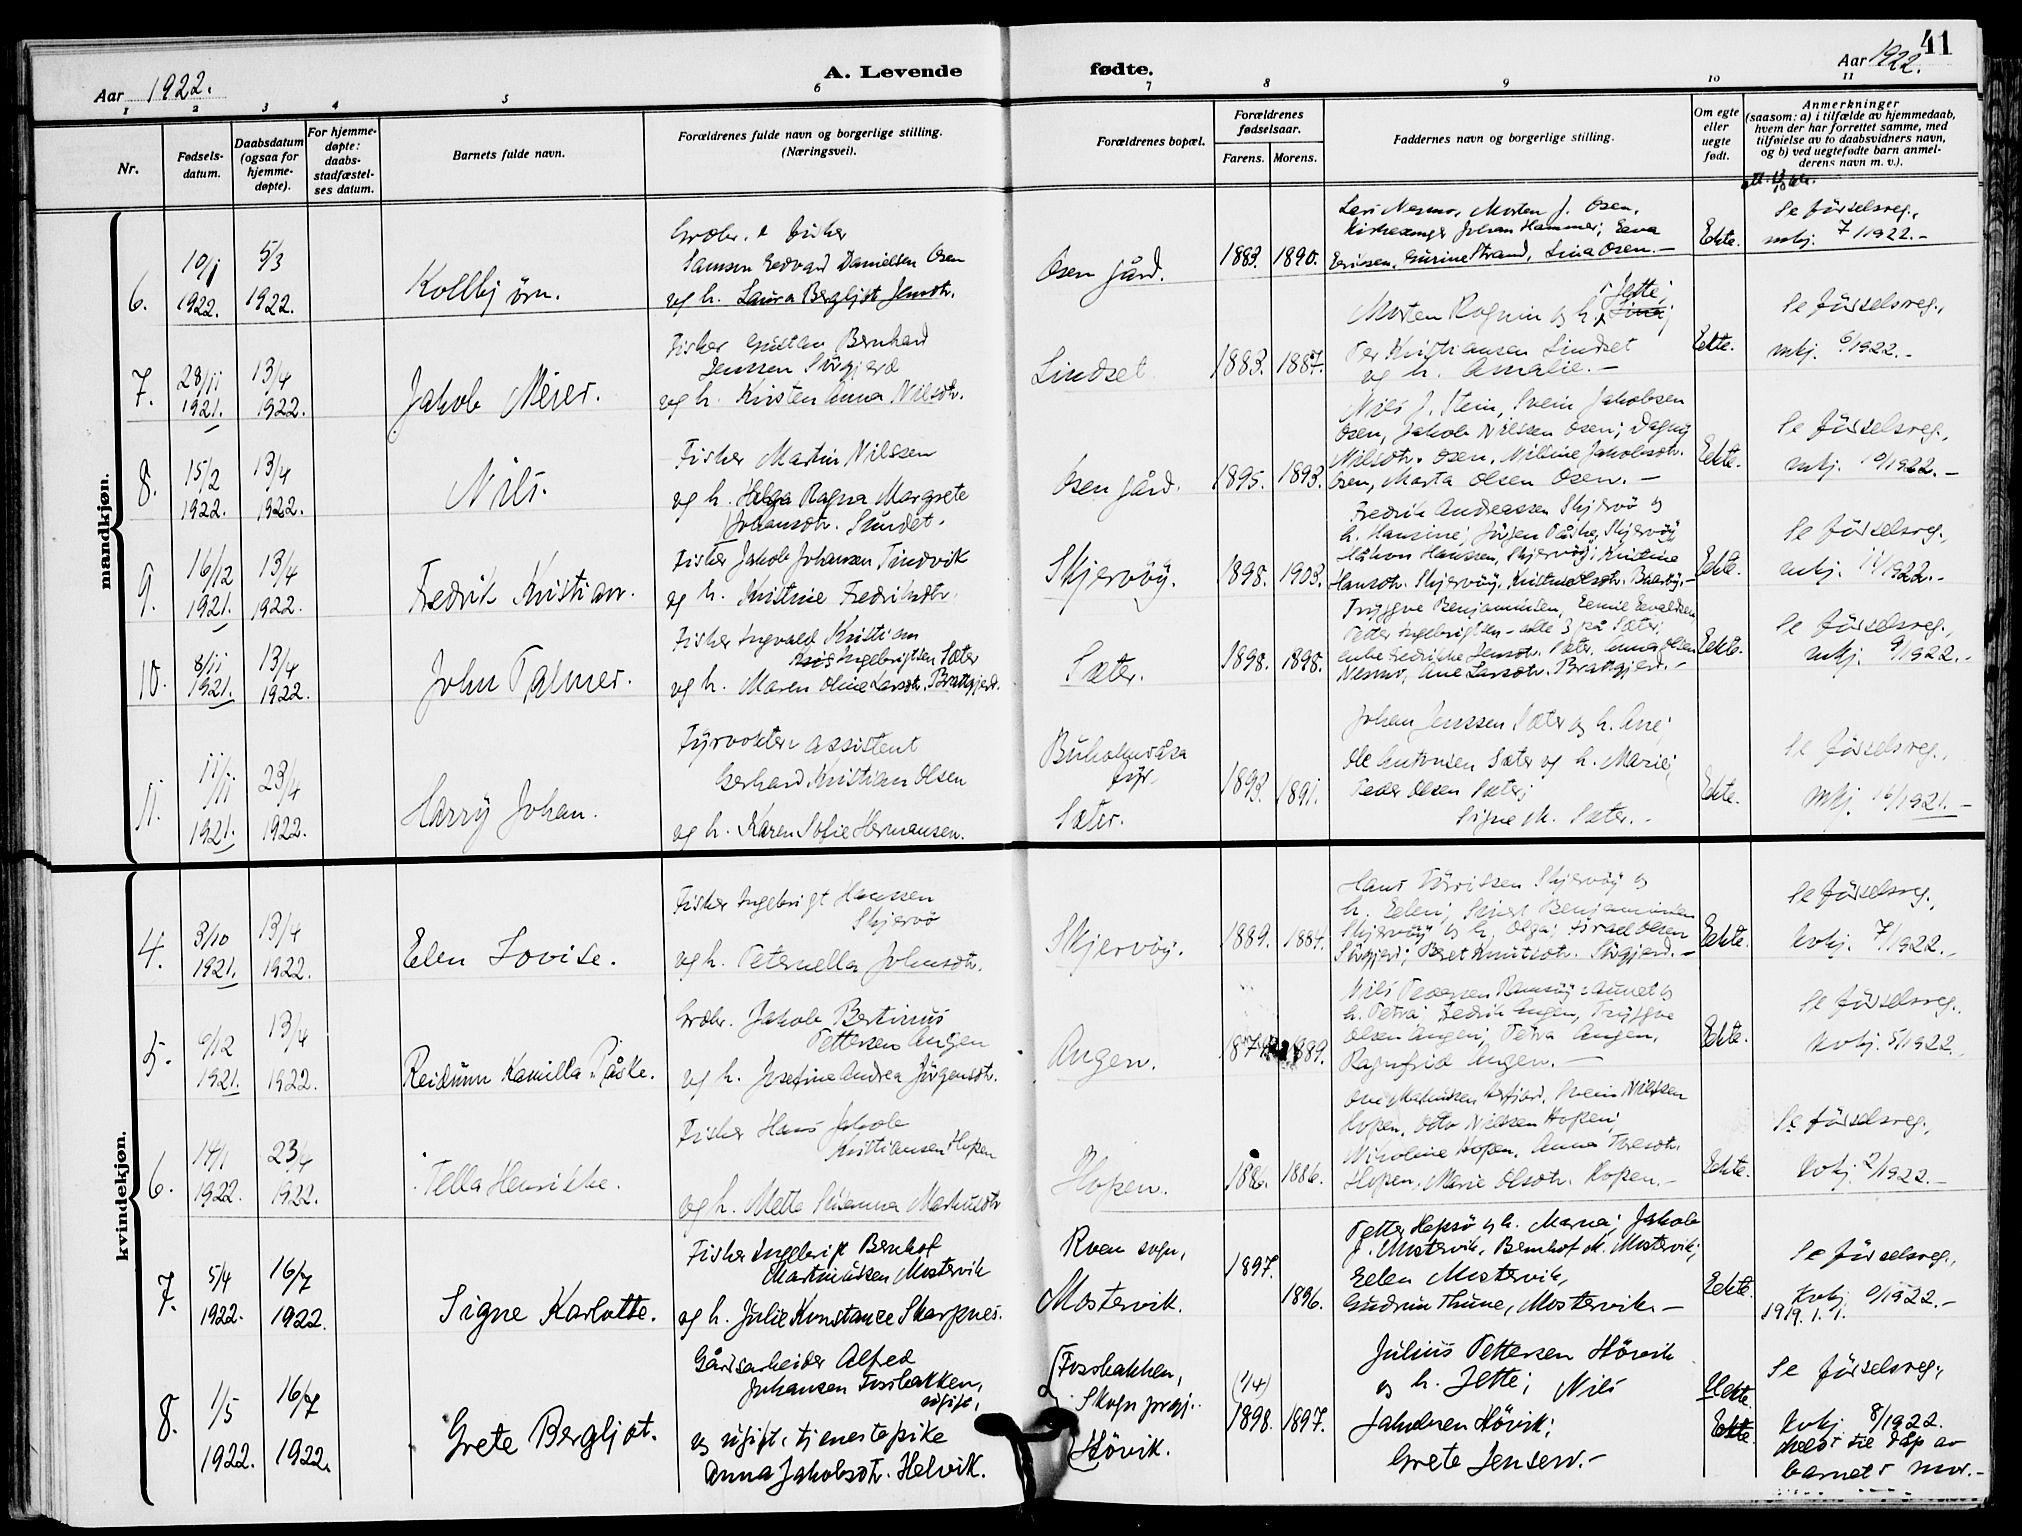 Aar 1922.
A. Levende
fødte.
Aar 1922.
41
1 2 3 4 5 6 7 8 9 10 11
Nr.
Fødsels-
datum.
Daabsdatum
(ogsaa for
hjemme-
døpte).
For hjemme-
døpte:
daabs-
stadfæstel-
ses datum.
Barnets fulde navn.
Forældrenes fulde navn og borgerlige stilling.
(Næringsvei).
Forældrenes bopæl.
Forældrenes
fødselsaar.
Farens. Morens.
Faddernes navn og borgerlige stilling.
Om egte
eller
uegte
født.
Anmerkninger
(saasom: a) i tilfælde av hjemmedaab,
hvem der har forrettet samme, med
tilføielse av to daabsvidners navn,
og b) ved uegtefødte barn anmel-
derens navn m. v.).
mandkjøn.
6.
10/1
1922.
5/3
1922.
Kollbjørn.
Græbr. & fisker
Samson Edvard Danielsen Osen
og h. Laura Bergljot Jensdtr.
Osen gård.
1883. 1890.
Morten J. Osen,
Kirkesanger Johan Hammer,
Strand, Lina Osen. -
Ekte.
Se fødselsreg.,
mkj. 7/1922. -
7.
28/11
1921.
13/4
1922.
Jakob Meier.
Fisker Gustav Bernhard
Jenssen Skjgjerd
og h. Kirsten Anna Nilsdtr.
Lindset
1883. 1887.
Morten Rognin og h. Jette;
Per Kristiansen Lindset
og h. Amalie. -
Ekte.
Se fødselsreg.,
mkj. 6/1922. -
8.
15/2
1922.
13/4
1922.
Nils.
Fisker Martin Nilssen
og h. Helga Ragna Margrete
Johansdtr. Sundet.
Osen gård.
1895. 1893.
Nils J. Stein, Svein Jakobsen
Osen, Jakob Nilssen Osen; Dagny
Nilsdtr. Osen, Nilsine Jakobsdtr.
Osen, Marta Olsen Osen. -
Ekte.
Se fødselsreg.,
mkj. 10/1922. -
9.
16/12
1921.
13/4
1922.
Fredrik Kristian.
Fisker Jakob Johansen Tindvik
og h. Kristine Fredriksdtr.
Skjervöy.
1898. 1903.
Fredrik Andreassen Skjervö og
h. Hansine; Jörgen Påske, Skjervöy
Håkon Hanssen, Skjervöy; Kristine
Hansdtr. Skjervöy,
Ekte.
Se fødselsreg.,
mkj. 11/1922. -
10.
8/11
1921.
13/4
1922.
John Palmer.
Fisker Ingvald Kristian
Ingebrigtsen Sæter
og h. Maren Oline Larsdtr. Brattgjerd.
Sæter.
1898. 1898.
Tryggve Benjaminsen,
Petter Ingebrigtsen - alle 3 på Sæter;
enke Fredrikke Jensdtr. Sæter, Anna Olsen
Nesmo, Ane Larsdtr. Brattgjerd. -
Ekte.
Se fødselsreg.,
mkj. 9/1922. -
11.
11/11
1921.
23/4
1922.
Harry Johan.
Fyrvokter assistent
Gerhard Kristian Olsen
og h. Karen Sofie Hermansen.
Buholmråsa
fyr.
Sæter.
1893. 1891.
Johan Jenssen Sæter og h. Ane;
Ole Antonsen Sæter og h. Marie;
Peder Olsen Sæter;
Signe M. Sæter. -
Ekte.
Se fødselsreg.,
mkj. 16/1921. -
kvindekjøn.
4.
3/10
1921.
13/4
1922.
Elen Lovise.
Fisker Ingebrigt Hanssen
Skjervö
og h. Peternella Johnsdtr.
Skjervöy.
1889. 1884.
Hans Törrissen Skjervöy og
h. Elen; Benjaminsen
Skjervöy og h. Olga; Israel Olsen
Beret Knutsdtr.
Ekte.
Se fødselsreg.,
kvkj. 7/1922. -
5.
9/12
1921.
13/4
1922.
Reidunn Kamilla Påske.
Græbr. Jakob Bertinus
Pettersen Angen
og h. Josefine Andrea Jörgensdtr.
Angen.
1889.
Nils Pedersen Ramsöy Aunet og
h. Petra; Fredrik Angen, Tryggve
Olsen Angen; Petra Angen,
Ragnfrid Angen. -
Ekte.
Se fødselsreg.
kvkj. 5/1922.
6.
14/1
1922.
23/4
1922.
Tella Henrikke.
Fisker Hans Jakob
Kristiansen Hopen
og h. Mette Susanna Markusdtr
Hopen.
1886. 1886.
Svein Nilssen
Hopen, Otto Nilssen Hopen;
Nikoline Hopen, Anna
Hopen, Marie Olsdtr. Hopen. -
Ekte.
Se fødselsreg.,
kvkj. 2/1922. -
7.
5/4
1922.
16/7
1922.
Signe Karlotte.
Fisker Ingebrigt Bernhof
Martinussen Mostervik
og h. Julie Konstance Skarpnes.
Roan sogn,
Mostervik.
1897.
1896.
Petter Hepsö og h. Marna; Jakob
J. Mostervik, Bernhof M. Mostervik;
Elen Mostervik,
Gudrun Thune, Mostervik. -
Ekte.
Se fødselsreg.,
kvkj. 6/1922. -
1919. 1. 1.
8.
1/5
1922.
16/7
1922.
Grete Bergljot.
Gårdsarbeider Alfred
Johansen Fossbakken,
ugift,
og ugift, tjenestepike
Anna Jakobsdtr. Helvik.
Fossbakken,
Skogn prgj.
Hövik.
(1/4)
1898. 1897.
Julius Pettersen Hövik
og h. Jette; Nils
Jakobsen Hövik;
Grete Jensen. -
Uekte.
Ekte.
Se fødselsreg.,
kvkj. 8/1922.
Meldt til dåp av
barnets mor. -